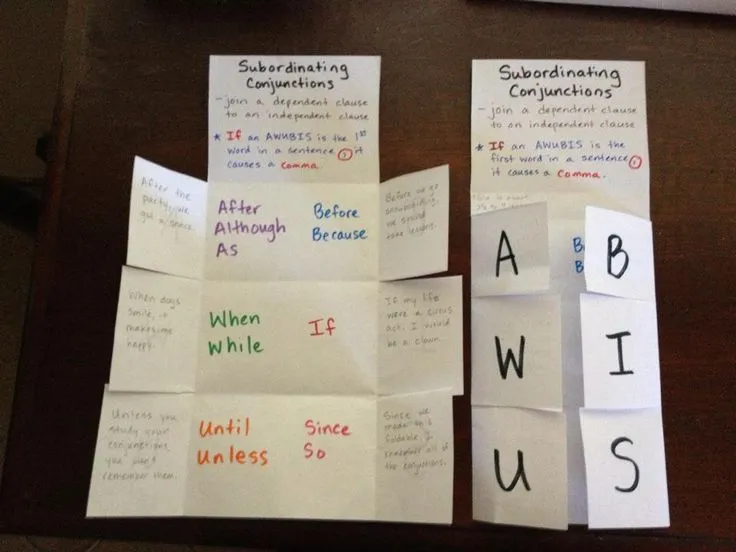 Subordinating
Conjunctions
- join a dependent clause
to an independent clause
* If an AWUBIS is the 1st
word in a sentence , it
causes a comma.
After the
party, we
got a
After
Although
As
Before
Because
Before we go
snowboarding,
we should
take lessons.
When dogs
smile, it
makes me
happy.
When
While
If
If my life
were a circus
act, I would
be a clown.
Unless you
study your
conjunctions,
you won't
remember them.
Until
Unless
Since
So
Since we
made
foldable I
all of
the conjunctions.
Subordinating
Conjunctions
- join a dependent clause
to an independent clause
* If an AWUBIS is the
first word in a sentence ,
it causes a comma.
A
B
B
B
W
I
U
S